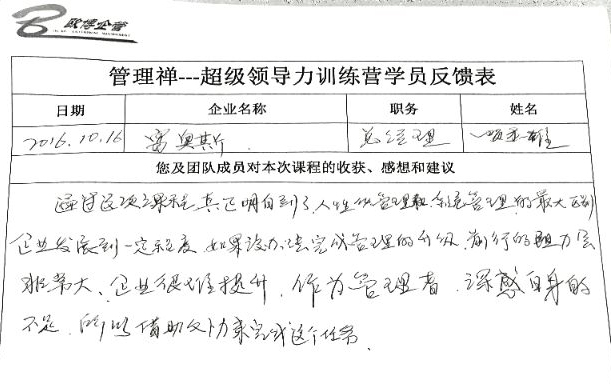 欧博企管
管理禅---超级领导力训练营学员反馈表
日期 企业名称 职务 姓名
2016.10.16 奥其斯 总经理 雄
您及团队成员对本次课程的收获、感想和建议
通过这项课程真正明白到了,人性化管理和制度管理的最大区别
企业发展到一定程度,如果没办法完成管理的升级,前行的阻力会
非常大、企业很难提升,作为管理者,深感自身的
不足,所以借助外力来完成这个任务.